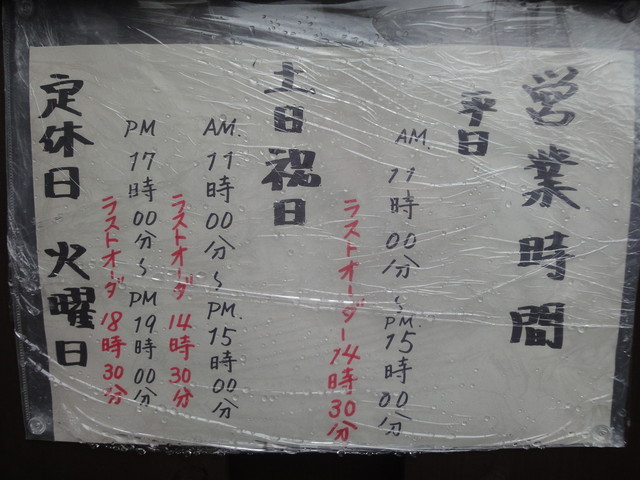 営業時間
平日
AM. 11時00分～PM.15時00分
ラストオーダー14時30分
土日祝日
AM. 11時00分～PM.15時00分
ラストオーダ 14時30分
PM 17時00分～PM19時00分
ラストオーダ 18時30分
定休日 火曜日